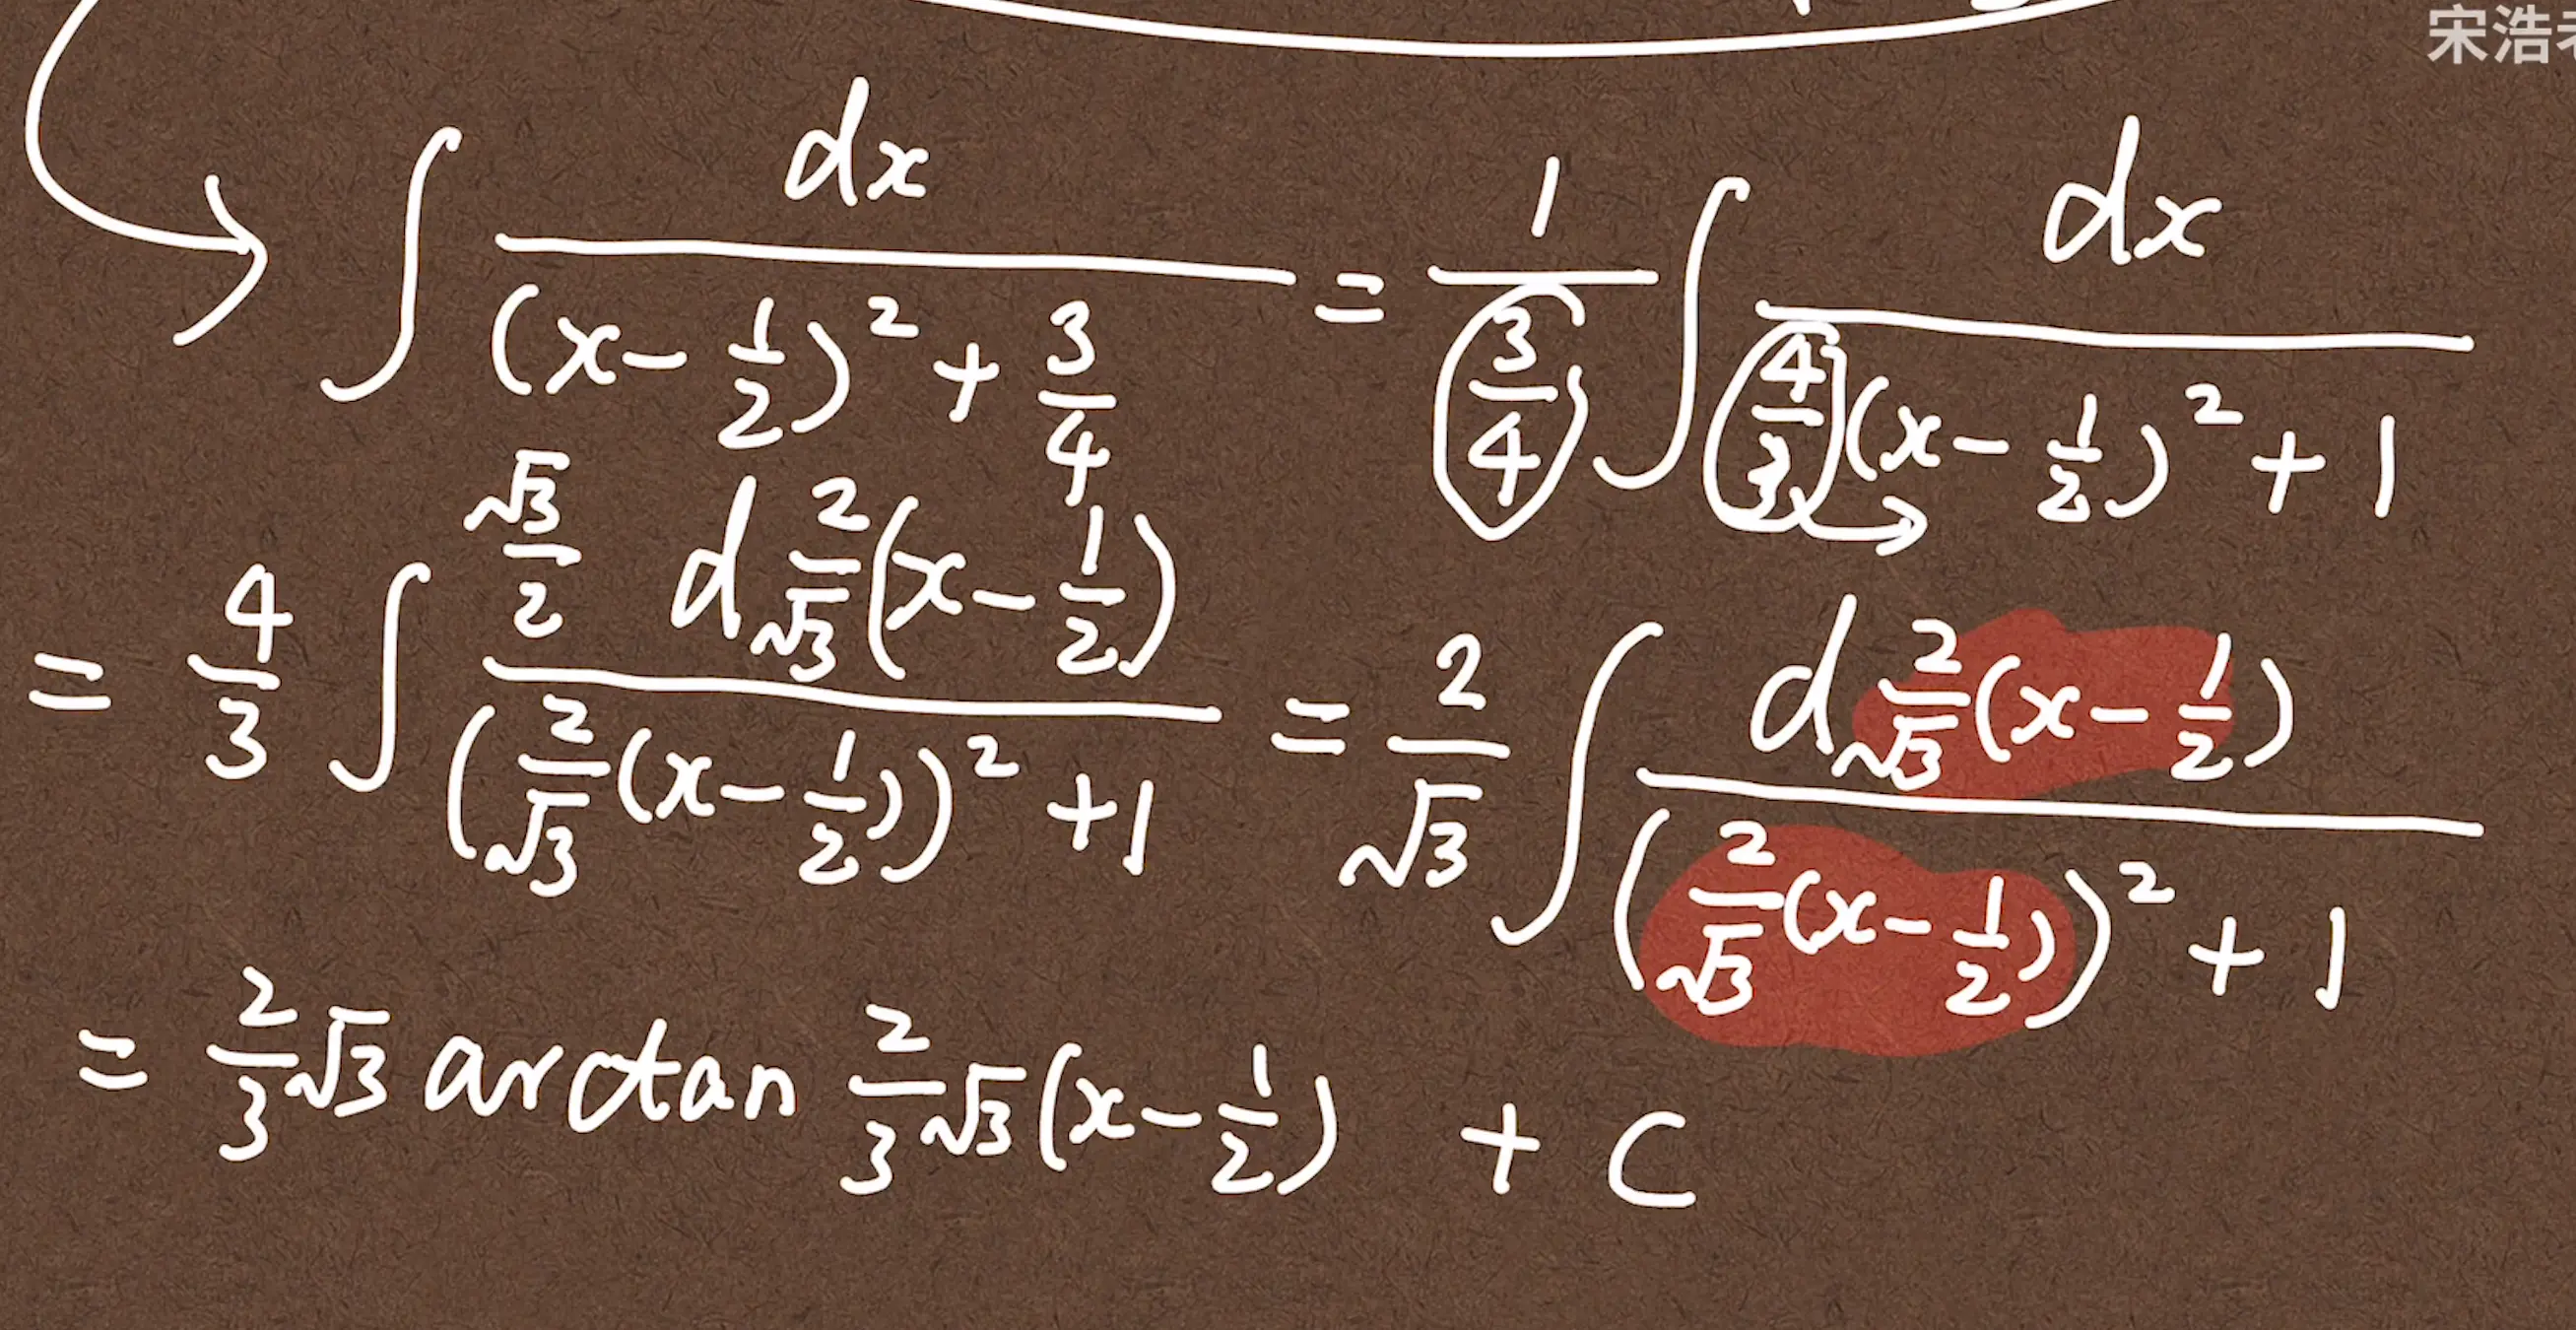 宋浩老
∫ dx / ((x - 1/2)² + 3/4) = 1/(3/4) ∫ dx / (4/3 (x - 1/2)² + 1)
= 4/3 ∫ √3/2 d 2/√3 (x - 1/2) / ((2/√3 (x - 1/2))² + 1) = 2/√3 ∫ d 2/√3 (x - 1/2) / ((2/√3 (x - 1/2))² + 1)
= 2/3 √3 arctan 2/3 √3 (x - 1/2) + C